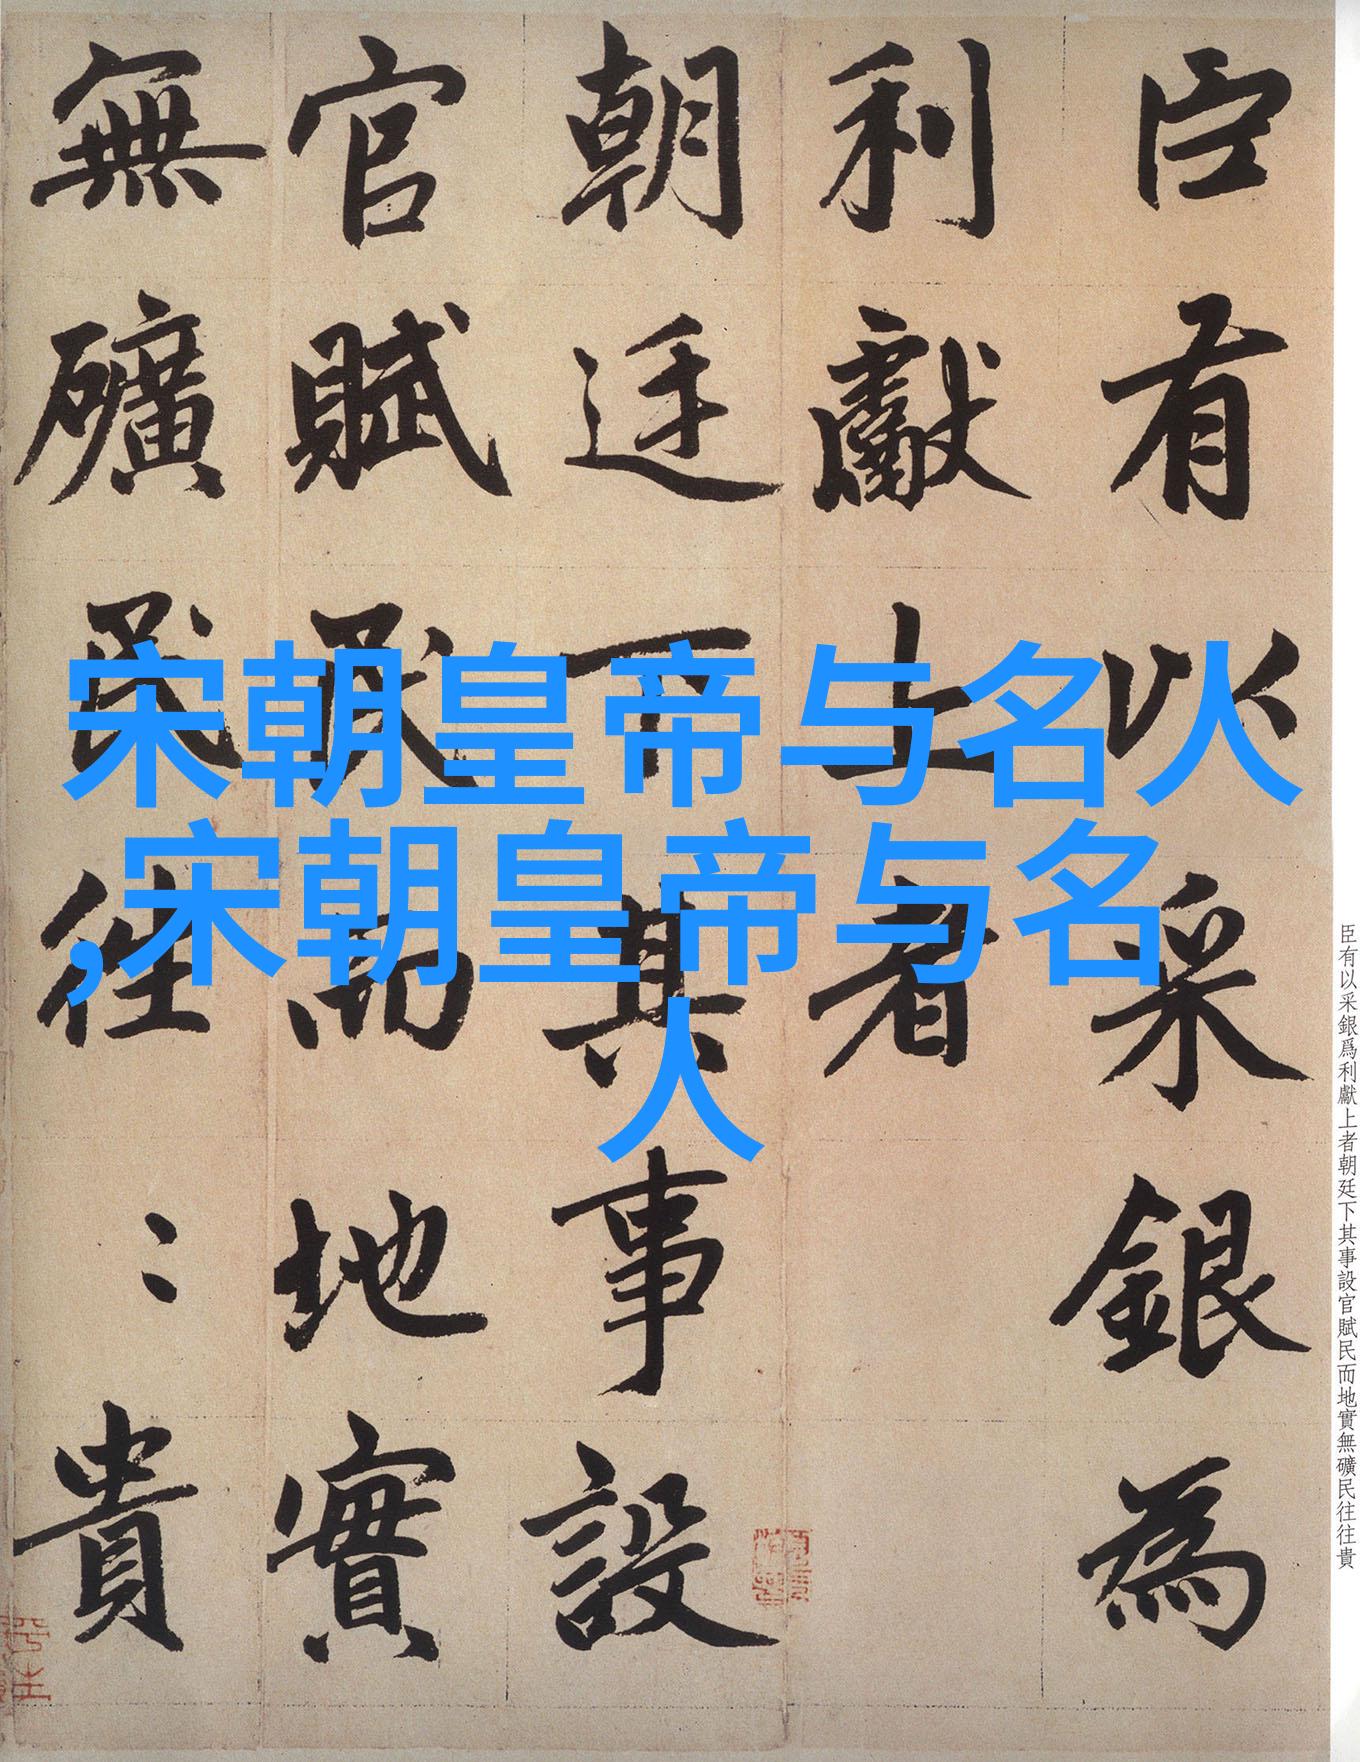 臣有以采銀為
利獻上者
朝廷下其事設
官賦民而地實
無礦民往〻貴
宋朝皇帝与名人
,宋朝皇帝与名
人
臣有以采銀爲利獻上者朝廷下其事設官賦民而地實無礦民往往貴